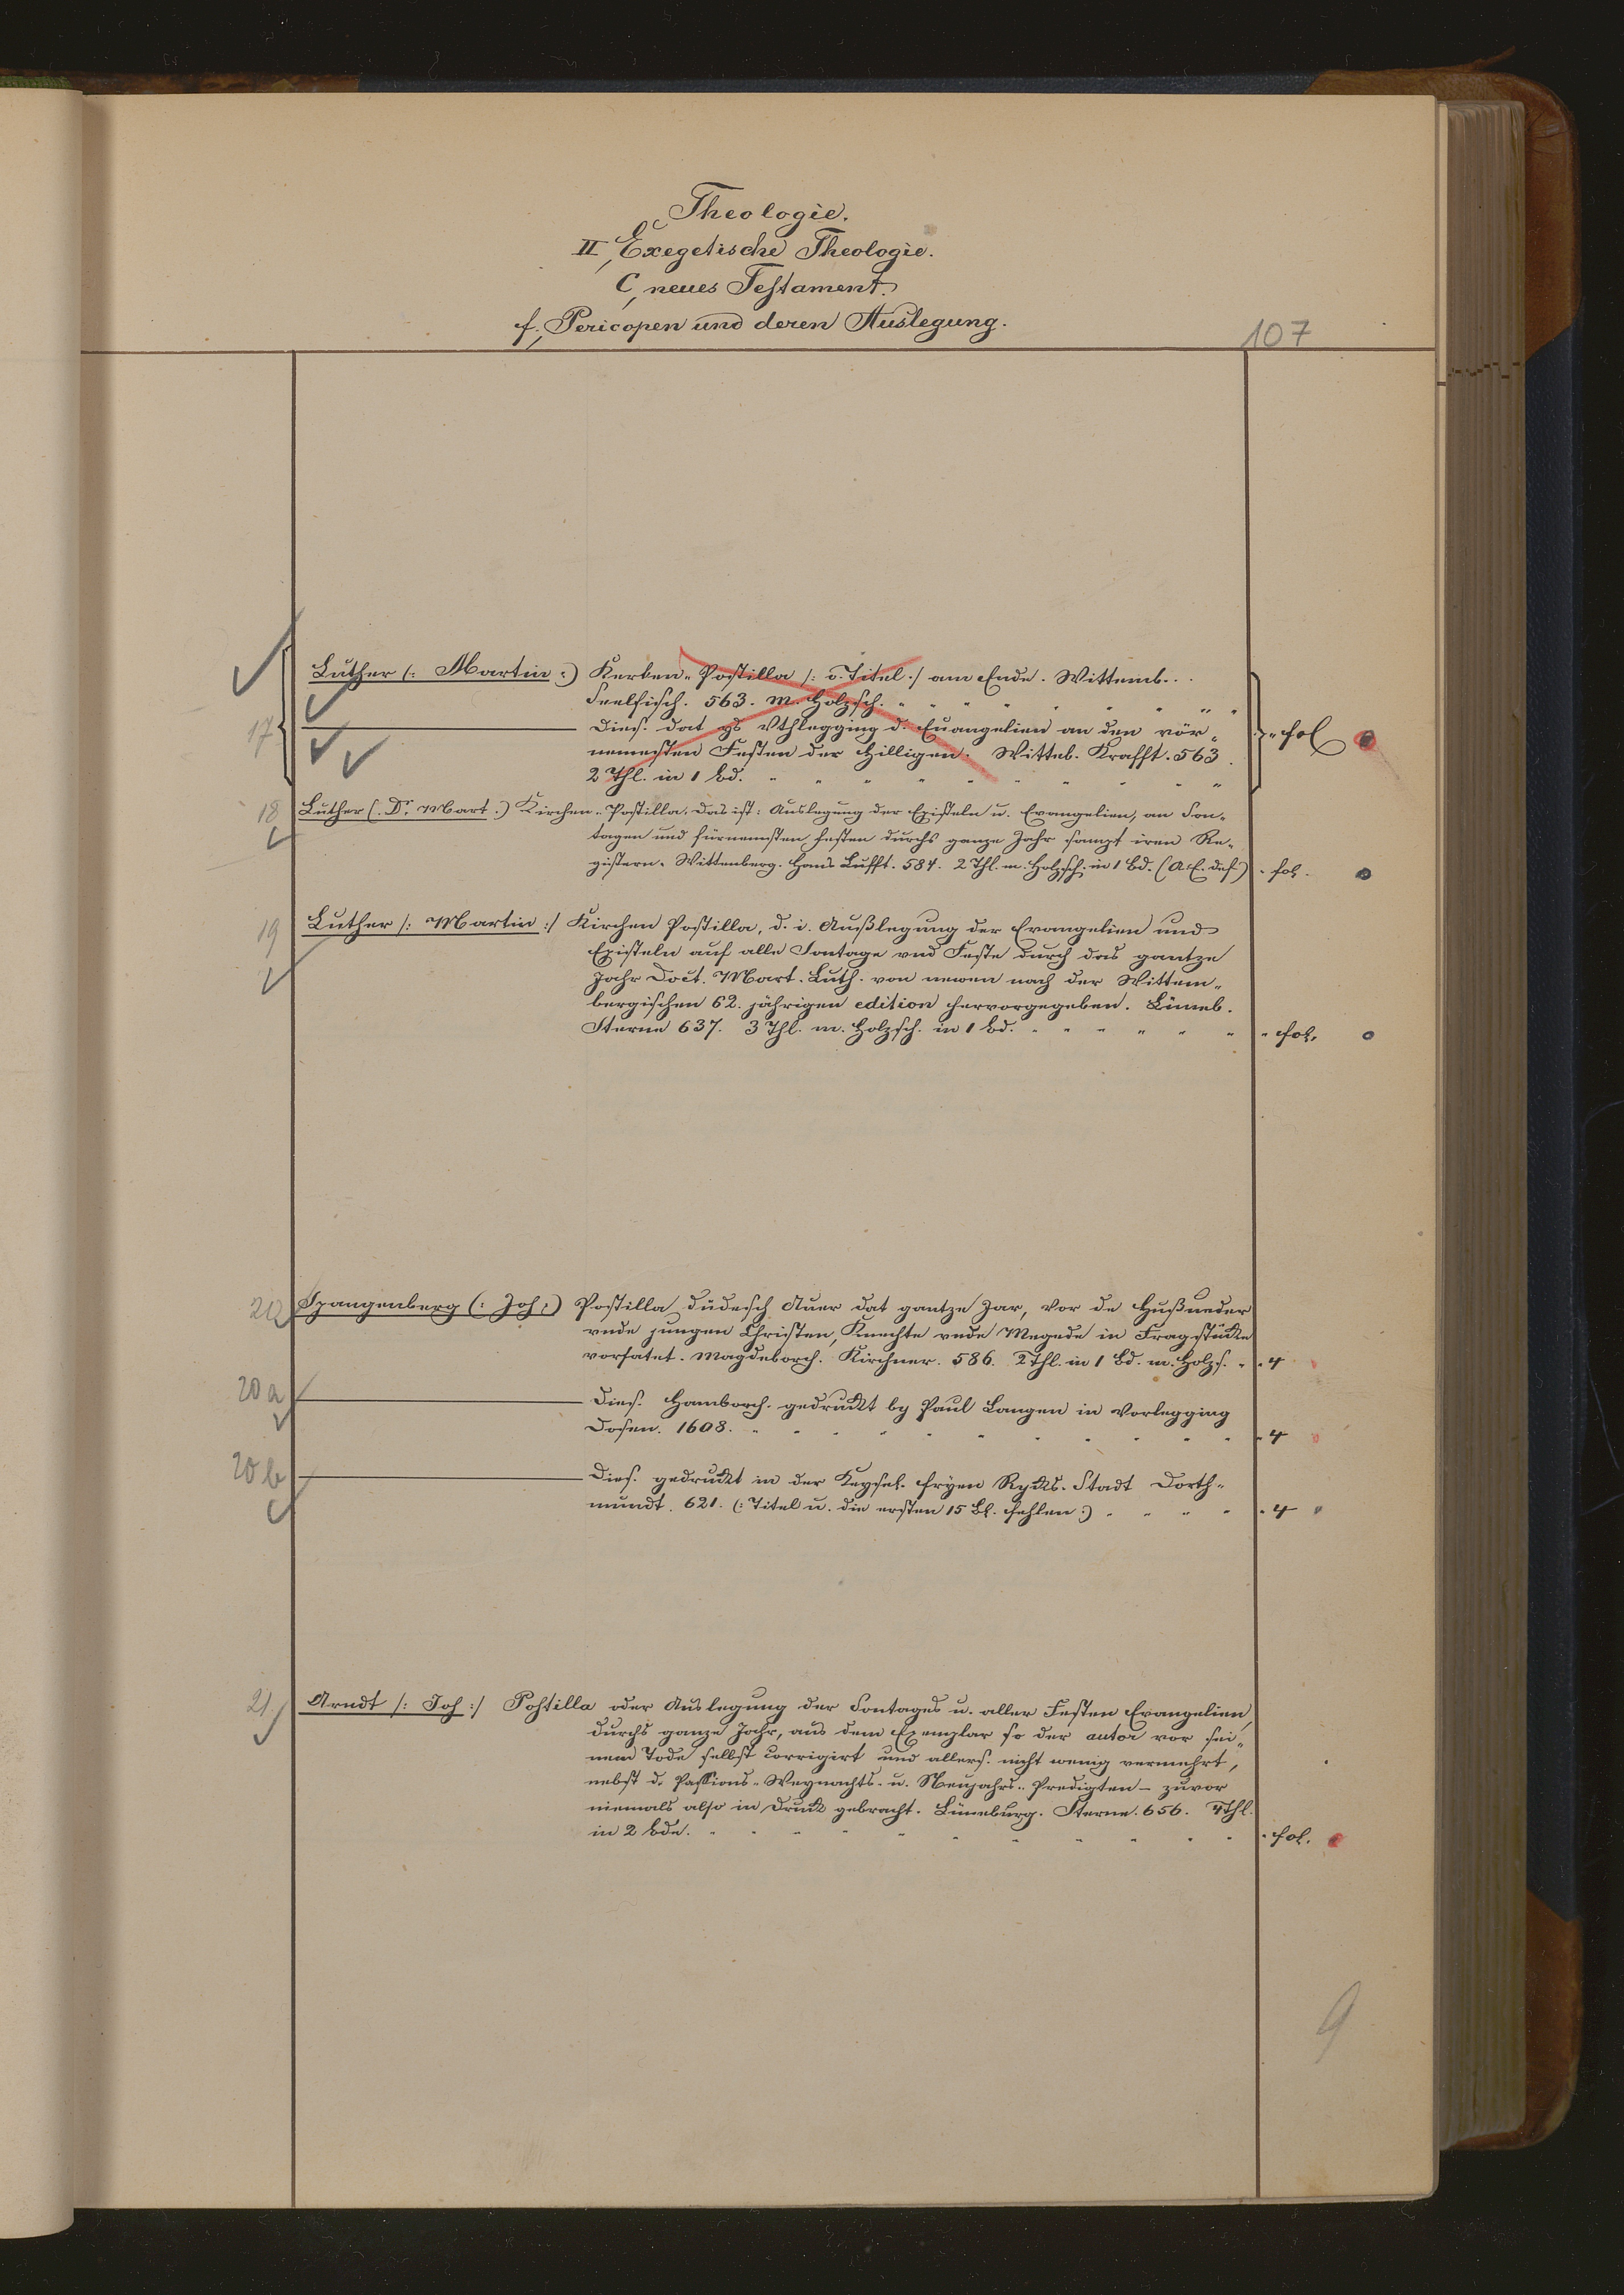 Theologie.
II, Exegetische Theologie.
C, neues Testament.
f., Pericopen und deren Auslegung.
107
Luther (: Martin :) Kerken-Postilla /: o. Titel :/ am Ende. Wittemb.
Seelfisch. 563. m. Holzsch.
17
Dies. dat ys Vthlegging d. Euangelien an den vör-
nemesten Festen der Hilligen. Witteb. Krafft. 563.
2 Thl. in 1 Bd.
fol
18 Luther (: Dr. Mart :) Kirchen-Postilla, das ist: Auslegung der Episteln u. Evangelien, an Son-
tagen und fürnemsten Festen durchs ganze Jahr sampt iren Re-
gistern. Wittenberg. Hans Lufft. 584. 2 Thl. m. Holzsch. in 1 Bd. (A. E. def) fol.
19 Luther /: Martin :/ Kirchen Postilla, d. i. Außlegung der Evangelien und
Episteln auf alle Sontage vnd Feste durch das gantze
Jahr Doct. Mart. Luth. von newen nach der Wittem-
bergischen 62. jährigen edition hervorgegeben. Lüneb.
Sterne 637. 3 Thl. m. Holzsch. in 1 Bd. fol.
20 Spangenberg (: Joh :) Postilla Düdesch Auer dat gantze Jar, vor de Hußueder
vnde jungen Christen, Knechte vnde Megede in Fragstücke
vorfatet. Magdeborch. Kirchner. 586. 2 Thl. in 1 Bd. m. Holzs. 4
20a Dies. Hamborch. gedruckt by Paul Langen in Vorlegging
Dosen. 1608. 4
20b Dies. gedruckt in der Keysel. fryen Rycks-Stadt Dorth-
mundt. 621. (: Titel u. die ersten 15 Bl. fehlen :) 4
21 Arndt /: Joh :/ Postilla oder Auslegung der Sontages u. aller Festen Evangelien,
durchs ganze Jahr, aus dem Exemplar so der autor vor sei-
nem Tode selbst corrigirt und allers. nicht wenig vermehrt,
nebst d. Passions- Weynachts- u. Neujahrs-Predigten – zuvor
niemals also in Druck gebracht. Lüneburg. Sterne. 656. 4 Thl.
in 2 Bde. fol.
9